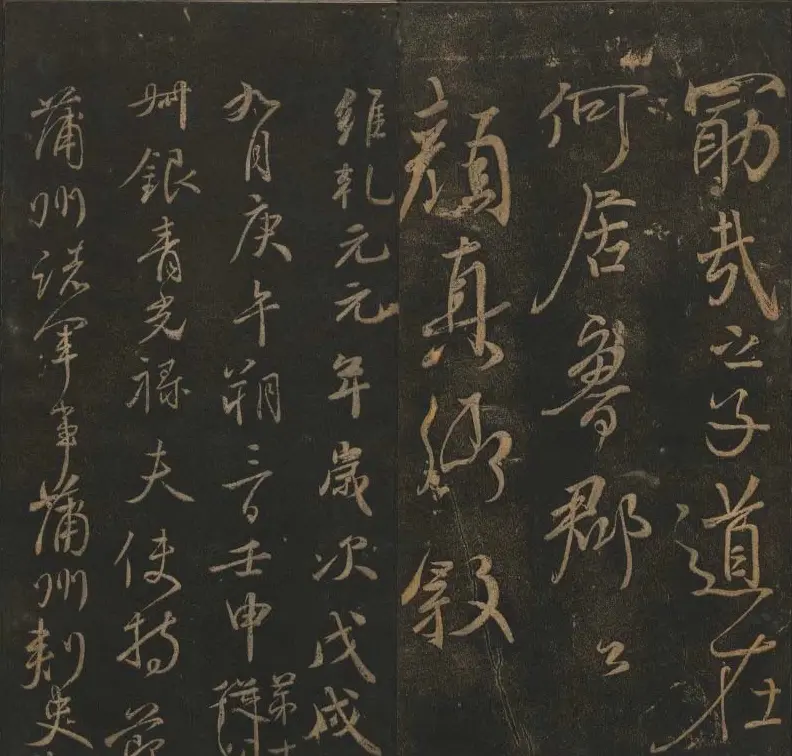 勖哉之子道在
何居魯郡公
顏真卿叙
維乾元元年歲次戊戌
九月庚午朔三日壬申第十
從父
叔銀青光祿夫使持節
蒲州諸軍事蒲州刺史